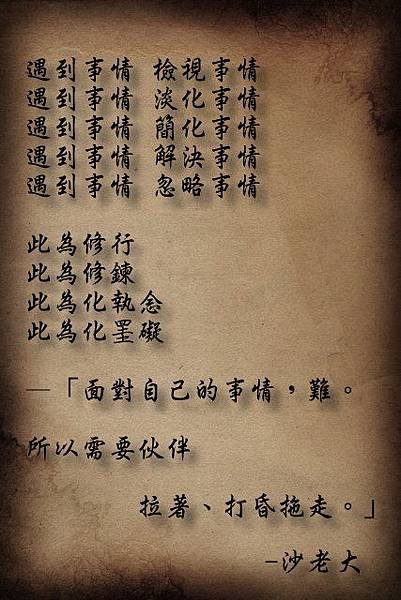 遇到事情 檢視事情
遇到事情 淡化事情
遇到事情 簡化事情
遇到事情 解決事情
遇到事情 忽略事情
此為修行
此為修鍊
此為化執念
此為化罣礙
—「面對自己的事情，難。
所以需要伙伴
拉著、打昏拖走。」
-沙老大